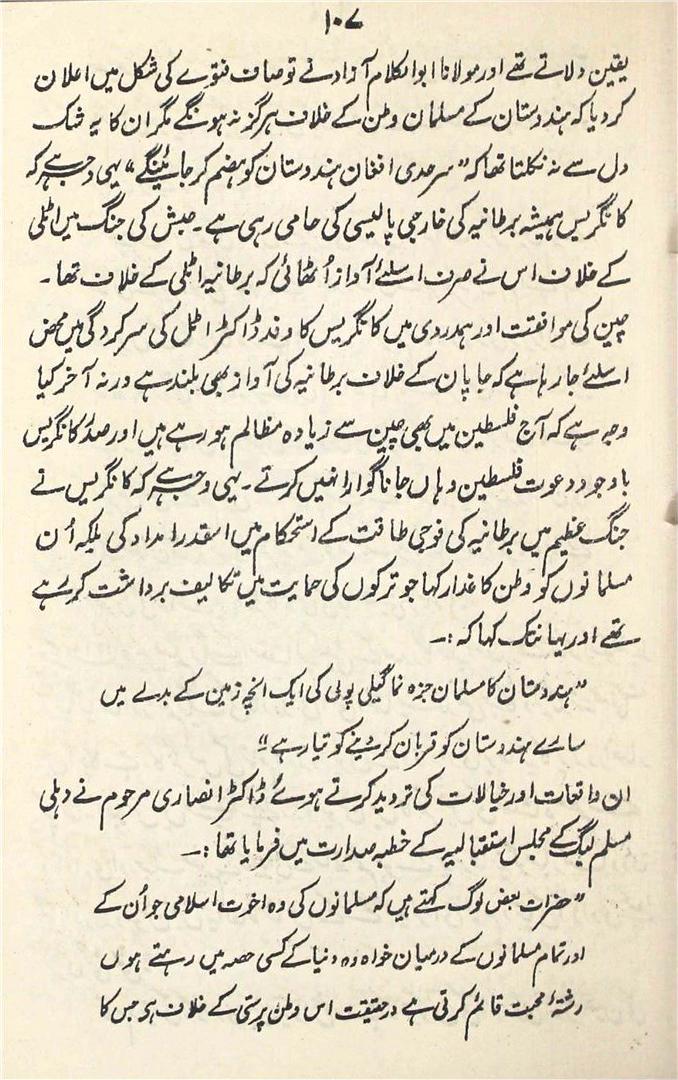 ۱۰۷
یقین دلاتے تھے اور مولانا ابوالکلام آزاد نے تو صاف فتوے کی شکل میں اعلان
کر دیا کہ ہندوستان کے مسلمان وطن کے خلاف ہرگز نہ ہونگے مگر ان کا یہ شک
دل سے نہ نکلتا تھا کہ "سرحدی افغان ہندوستان کو ہضم کر جائینگے" یہی وجہ ہے کہ
کانگریس ہمیشہ برطانیہ کی خارجی پالیسی کی حامی رہی ہے۔ حبش کی جنگ میں اٹلی
کے خلاف اس نے صرف اسلئے آواز اُٹھائی کہ برطانیہ اٹلی کے خلاف تھا۔
چین کی موافقت اور ہمدردی میں کانگریس کا وفد ڈاکٹر اٹل کی سرکردگی میں محض
اسلئے جا رہا ہے کہ جاپان کے خلاف برطانیہ کی آواز بھی بلند ہے ورنہ آخر کیا
وجہ ہے کہ آج فلسطین میں بھی چین سے زیادہ مظالم ہو رہے ہیں اور صدر کانگریس
باوجود دعوت فلسطین وہاں جانا گوارا نہیں کرتے۔ یہی وجہ ہے کہ کانگریس نے
جنگ عظیم میں برطانیہ کی فوجی طاقت کے استحکام میں اسقدر امداد کی بلکہ اُن
مسلمانوں کو وطن کا غدار کہا جو ترکوں کی حمایت میں تکالیف برداشت کر رہے
تھے اور یہانتک کہا کہ :۔
"ہندوستان کا مسلمان جزہ نما گیلی پولی کی ایک انچہ زمین کے بدلے میں
سارے ہندوستان کو قربان کر دینے کو تیار ہے"
ان واقعات اور خیالات کی تردید کرتے ہوئے ڈاکٹر انصاری مرحوم نے دہلی
مسلم لیگ کے مجلس استقبالیہ کے خطبہ صدارت میں فرمایا تھا :۔
"حضرات بعض لوگ کہتے ہیں کہ مسلمانوں کی وہ اخوت اسلامی جو اُن کے
اور تمام مسلمانوں کے درمیان خواہ وہ دنیا کے کسی حصہ میں رہتے ہوں
رشتۂ محبت قائم کرتی ہے درحقیقت اس وطن پرستی کے خلاف ہو جس کا